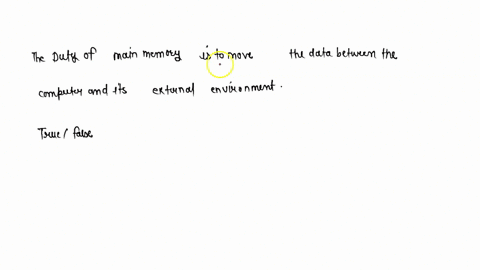 The Duty of main memory is to move the data between the
computer and its external environment.
True/false